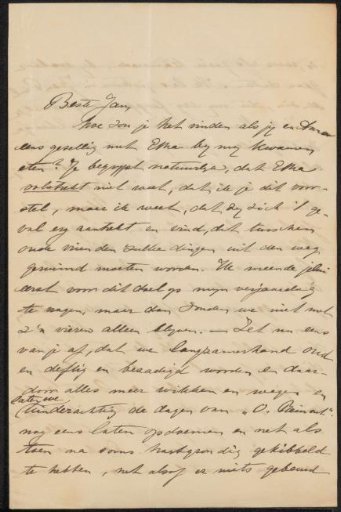 Beste Jan,
hoe zou je het vinden als jij en
eens gezellig met Etha bij mij kwamen
eten? Je begrijpt natuurlijk, dat Etha
volstrekt niet weet, dat ik je dit voor-
stel, maar ik weet, dat zij zich 't ge-
val erg aantrekt en vind, dat tusschen
oude vrienden zulke dingen uit den weg
geruimd moeten worden. Ik meende je
eerst voor dit doel op mijn verjaardag
te vragen, maar dan zouden we niet met
z'n vieren alleen blijven. — Zet nu eens
van je af, dat we langzamerhand oud
en deftig en bezadigd worden en daar-
door alles meer wikken en wegen en
laten we
de dagen van „O.
nog eens laten opdoemen en net als
toen na soms hardgrondig gekibbeld
te hebben, net alsof er niets gebeurd